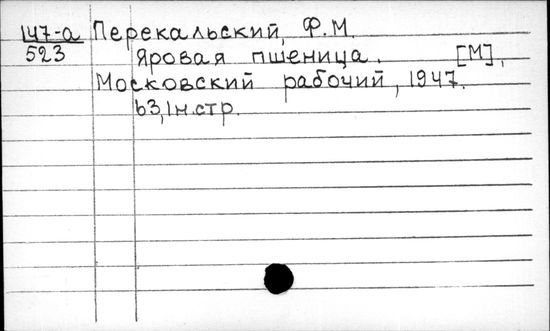 147-а Перекальский, Ф.М.
523 Яровая пшеница. [М],
Московский рабочий, 1947.
63, 1н.стр.